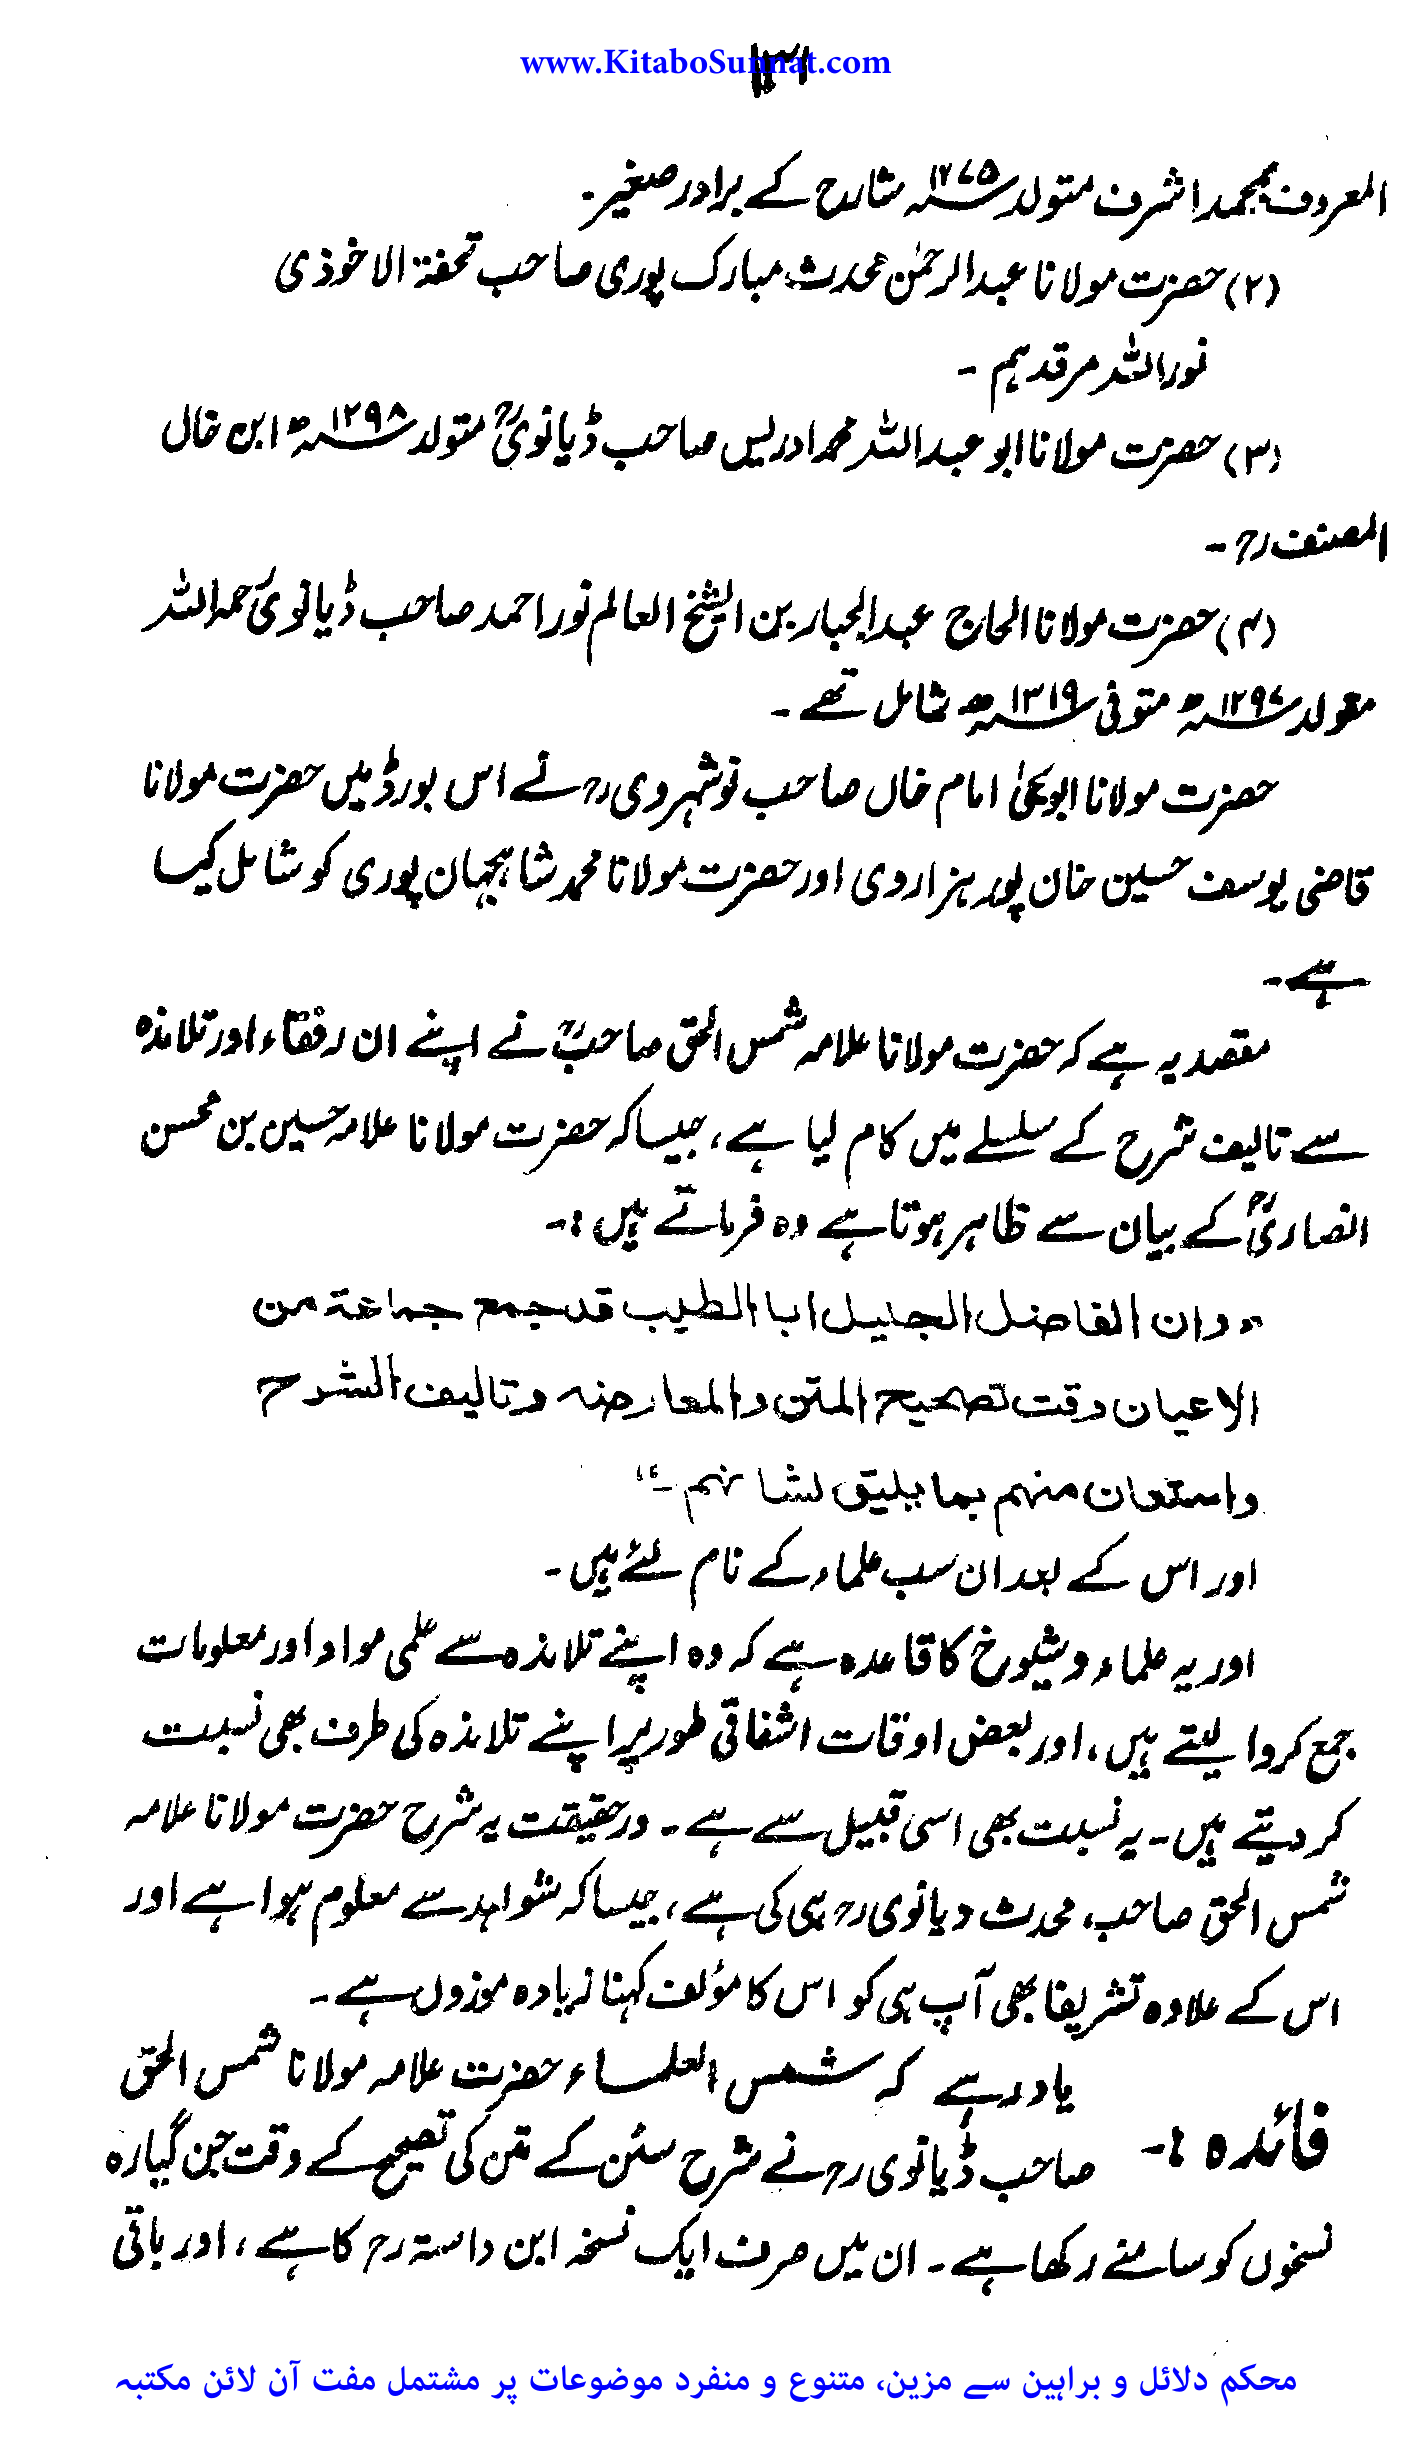 www.KitaboSunnat.com
۱۳۱
المعروف بمحمد اشرف متولد ۱۲۷۵ھ شارح کے برادر صغیر۔
(۲) حضرت مولانا عبدالرحمٰن محدث مبارک پوری صاحب تحفۃ الاخوذی
نوراللہ مرقدہم ۔
(۳) حضرت مولانا ابو عبداللہ محمد ادریس صاحب ڈیانویؒ متولد ۱۲۹۸ھ ابن خال
المصنف رح ۔
(۴) حضرت مولانا الحاج عبدالجبار بن الشیخ العالم نور احمد صاحب ڈیانوی رحمہ اللہ
متولد ۱۲۹۷ھ متوفی ۱۳۱۹ھ شامل تھے ۔
حضرت مولانا ابویحییٰ امام خاں صاحب نوشہروی رح نے اس بورڈ میں حضرت مولانا
قاضی یوسف حسین خان پور ہزاروی اور حضرت مولانا محمد شاہجہان پوری کو شامل کیا
ہے ۔
مقصد یہ ہے کہ حضرت مولانا علامہ شمس الحق صاحبؒ نے اپنے ان رفقاء اور تلامذہ
سے تالیف شرح کے سلسلے میں کام لیا ہے، جیسا کہ حضرت مولانا علامہ حسین بن محسن
انصاریؒ کے بیان سے ظاہر ہوتا ہے وہ فرماتے ہیں :۔
”وان الفاضل الجلیل ابا الطیب قد جمع جماعۃ من
الاعیان وقت تصحیح المتن والمعارضہ وتالیف الشرح
واستعان منہم بما یلیق لشانہم ۔“
اور اس کے بعد ان سب علماء کے نام لئے ہیں ۔
اور یہ علماء و شیوخ کا قاعدہ ہے کہ وہ اپنے تلامذہ سے علمی مواد اور معلومات
جمع کروا لیتے ہیں، اور بعض اوقات اشفاقی طور پر اپنے تلامذہ کی طرف بھی نسبت
کر دیتے ہیں۔ یہ نسبت بھی اسی قبیل سے ہے ۔ درحقیقت یہ شرح حضرت مولانا علامہ
شمس الحق صاحب، محدث دیانوی رح ہی کی ہے، جیسا کہ شواہد سے معلوم ہوا ہے اور
اس کے علاوہ تشریفا بھی آپ ہی کو اس کا مؤلف کہنا زیادہ موزوں ہے ۔
فائدہ :۔ یاد رہے کہ شمس العلماء حضرت علامہ مولانا شمس الحق
صاحب ڈیانوی رح نے شرح سنن کے متن کی تصحیح کے وقت جن گیارہ
نسخوں کو سامنے رکھا ہے ۔ ان میں صرف ایک نسخہ ابن داستہ رح کا ہے، اور باقی
محکم دلائل و براہین سے مزین، متنوع و منفرد موضوعات پر مشتمل مفت آن لائن مکتبہ